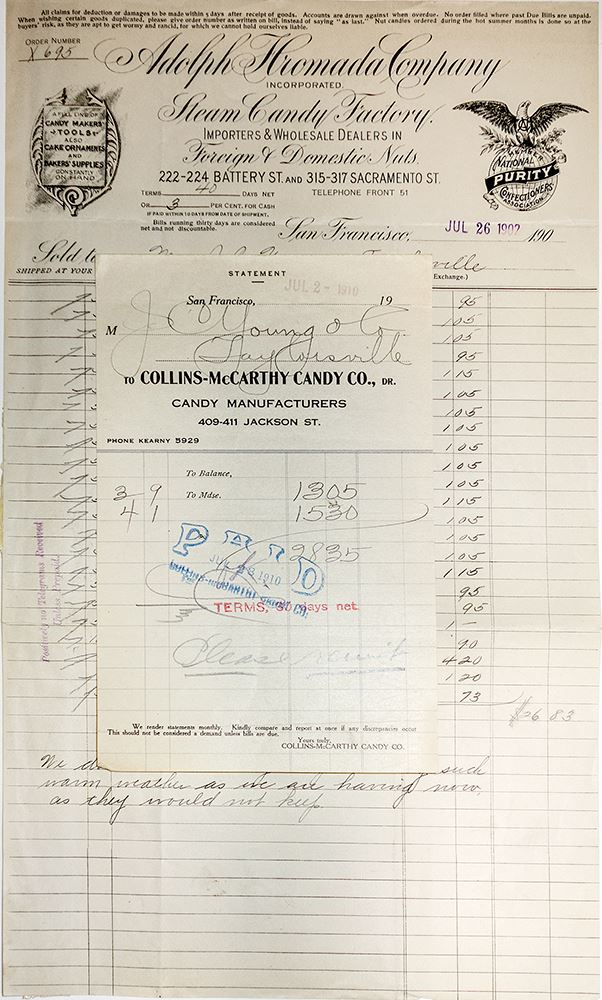 All claims for deduction or damages to be made within 5 days after receipt of goods. Accounts are drawn against when overdue. No order filled where past Due Bills are unpaid.
When wishing certain goods duplicated, please give order number as written on bill, instead of saying "as last." Nut candies ordered during the hot summer months is done so at the
buyers' risk, as they are apt to get wormy and rancid, for which we cannot hold ourselves liable.
ORDER NUMBER
X 695
Adolph Hromada Company
INCORPORATED.
Steam Candy Factory.
IMPORTERS & WHOLESALE DEALERS IN
Foreign & Domestic Nuts.
222-224 BATTERY ST. AND 315-317 SACRAMENTO ST.
A FULL LINE OF
CANDY MAKERS'
TOOLS
ALSO
CAKE ORNAMENTS
AND
BAKERS' SUPPLIES
CONSTANTLY
ON HAND
NATIONAL
PURITY
CONFECTIONERS
ASSOCIATION
TERMS 40 DAYS NET
TELEPHONE FRONT 51
OR 3 PER CENT. FOR CASH
IF PAID WITHIN 10 DAYS FROM DATE OF SHIPMENT.
Bills running thirty days are considered
net and not discountable.
San Francisco, JUL 26 1902 190
Sold to
ville
SHIPPED AT YOUR
Exchange.)
STATEMENT
San Francisco, JUL 2 - 1910 19
M J C Young & Co.
Taylorsville
TO COLLINS-McCARTHY CANDY CO., DR.
CANDY MANUFACTURERS
409-411 JACKSON ST.
PHONE KEARNY 5929
To Balance,
3 9 To Mdse. 1305
4 1 1530
2835
PAID
JUL 1910
COLLINS-McCARTHY CANDY CO.
TERMS, 30 days net
Please remit
We render statements monthly. Kindly compare and report at once if any discrepancies occur
This should not be considered a demand unless bills are due.
Yours truly,
COLLINS-McCARTHY CANDY CO.
95
105
105
95
115
105
105
105
105
105
105
105
115
105
105
105
115
95
95
1 -
90
420
120
73
$26 83
Positively no Telegrams Received
Unless Prepaid.
We d
such
warm weather as we are having now,
as they would not keep.